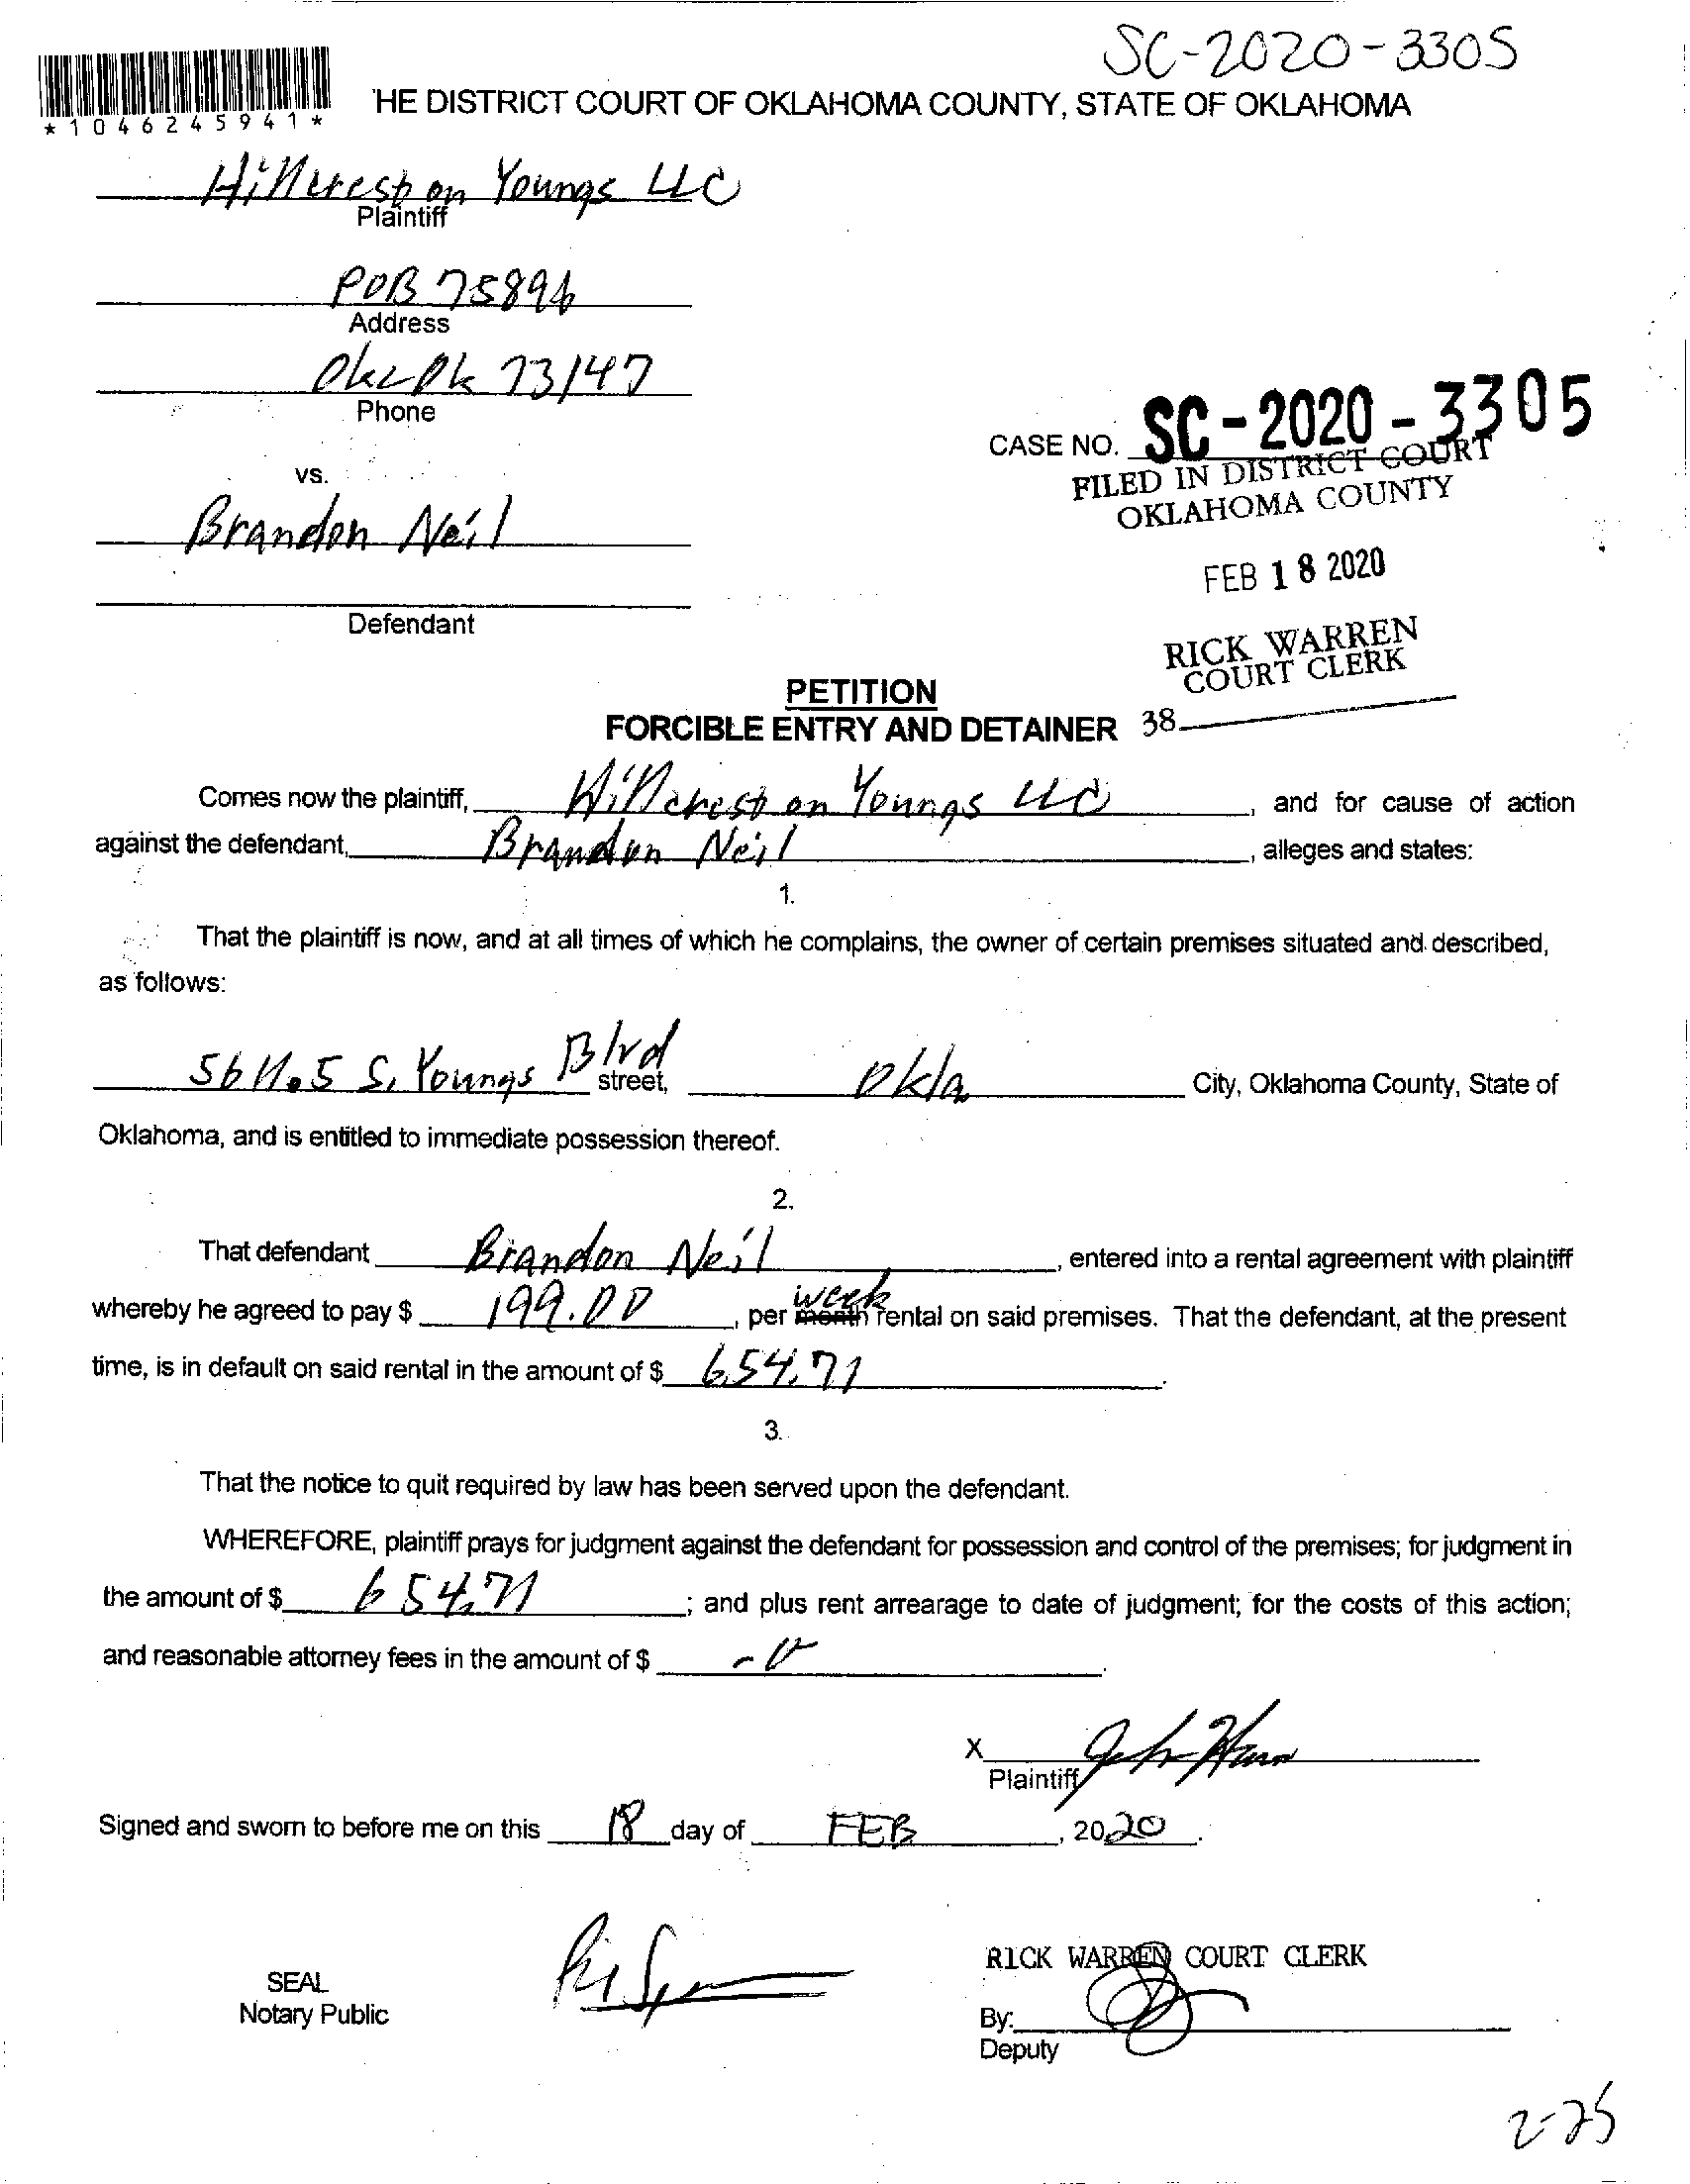 SC-2020-3305
*1046245941*
'HE DISTRICT COURT OF OKLAHOMA COUNTY, STATE OF OKLAHOMA
Hillcrest on Youngs LLC
Plaintiff
POB 75896
Address
Okc Ok 73147
Phone
CASE NO. SC-2020-3305
vs.
FILED IN DISTRICT COURT
OKLAHOMA COUNTY
Brandon Neil
FEB 18 2020
Defendant
RICK WARREN
COURT CLERK
PETITION
FORCIBLE ENTRY AND DETAINER 38
Comes now the plaintiff, Hillcrest on Youngs LLC, and for cause of action
against the defendant, Brandon Neil, alleges and states:
1.
That the plaintiff is now, and at all times of which he complains, the owner of certain premises situated and described,
as follows:
5611.5 S. Youngs Blvd street, Okla City, Oklahoma County, State of
Oklahoma, and is entitled to immediate possession thereof.
2.
That defendant Brandon Neil, entered into a rental agreement with plaintiff
whereby he agreed to pay $ 199.00, per month week rental on said premises. That the defendant, at the present
time, is in default on said rental in the amount of $ 654.71.
3.
That the notice to quit required by law has been served upon the defendant.
WHEREFORE, plaintiff prays for judgment against the defendant for possession and control of the premises; for judgment in
the amount of $ 654.71; and plus rent arrearage to date of judgment; for the costs of this action;
and reasonable attorney fees in the amount of $
X
Plaintiff
Signed and sworn to before me on this 18 day of FEB, 2020.
SEAL
Notary Public
RICK WARREN COURT CLERK
By:
Deputy
2-25